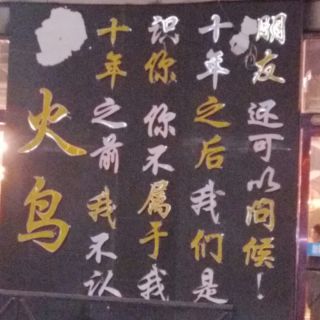 火鸟
十年之前我不认
识你 你不属于我
十年之后我们是
朋友 还可以问候！